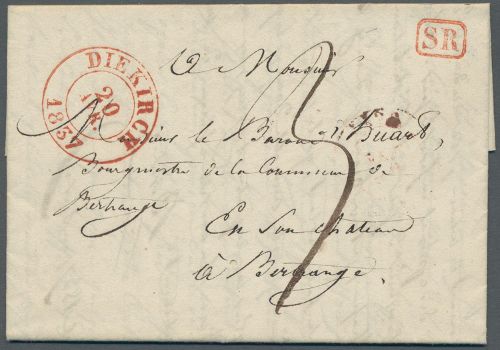 DIEKIRCH
20
1837
SR
A Monsieur
Monsieur le Baron d'Huart,
Bourgmestre de la Commune de
Bertrange
En son château
à Bertrange.
3